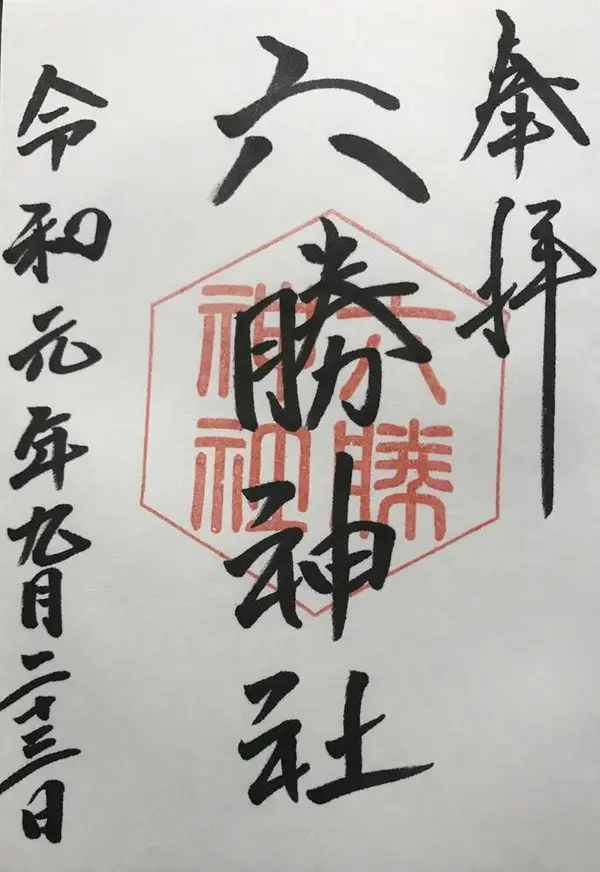 奉拝
六勝神社
六勝
神社
令和元年九月二十三日